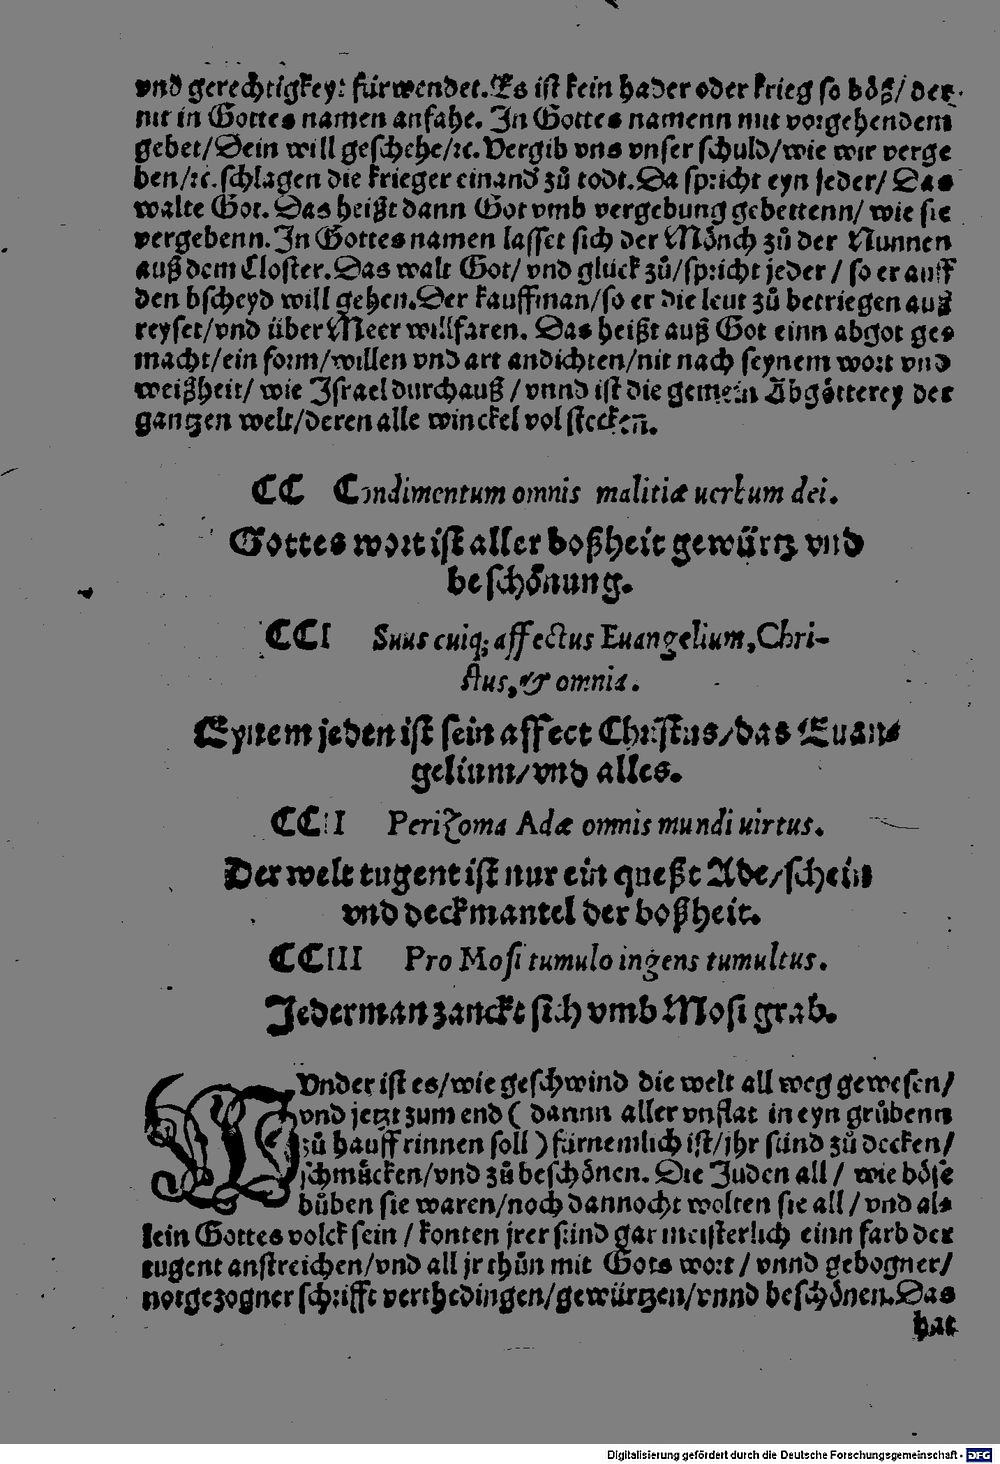 vnd gerechtigkeyt fürwendet. Es ist kein hader oder krieg so böß/ der
nit in Gottes namen anfahe. In Gottes namenn mit vorgehendem
gebet/Dein will geschehe/ꝛc. Vergib vns vnser schuld/wie wir verge
ben/ꝛc. schlagen die krieger einand zů todt. Da spricht eyn jeder/ Das
walte Got. Das heißt dann Got vmb vergebung gebettenn/ wie sie
vergebenn. In Gottes namen lasset sich der Mönch zů der Nunnen
auß dem Closter. Das walt Got/ vnd glück zů/spricht jeder / so er auff
den bscheyd will gehen. Der kauffman/so er die leut zů betriegen auß
reyset/vnd über Meer will faren. Das heißt auß Got einn abgot ge⸗
macht/ein form/willen vnd art andichten/nit nach seynem wort vnd
weißheit/ wie Israel durchauß / vnnd ist die gemein Abgötterey der
gantzen welt/deren alle winckel vol stecken̄.
CC Condimentum omnis malitiæ uerbum dei.
Gottes wort ist aller boßheit gewürtz vnd
beschönung.
CCI Suus cuiq; affectus Euangelium, Chri-
stus, & omnia.
Eynem jeden ist sein affect Christus/das Euan⸗
gelium/vnd alles.
CCII Perizoma Adæ omnis mundi uirtus.
Der welt tugent ist nur ein queßt Ade/schein
vnd deckmantel der boßheit.
CCIII Pro Mosi tumulo ingens tumultus.
Jederman zanckt sich vmb Mosi grab.
WVnder ist es/wie geschwind die welt all weg gewesen/
vnd jetzt zum end ( dannn aller vnflat in eyn grůbenn
zů hauff rinnen soll ) fürnemlich ist/jhr sünd zů decken/
schmücken/vnd zů beschönen. Die Juden all / wie böse
bůben sie waren/noch dannocht wolten sie all / vnd al⸗
lein Gottes volck sein / konten jrer sünd gar meisterlich einn farb der
tugent anstreichen/vnd all jr thůn mit Gots wort / vnnd gebogner/
notgezogner schrifft verthedingen/gewürtzen/vnnd beschönen. Das
hat
Digitalisierung gefördert durch die Deutsche Forschungsgemeinschaft - DFG